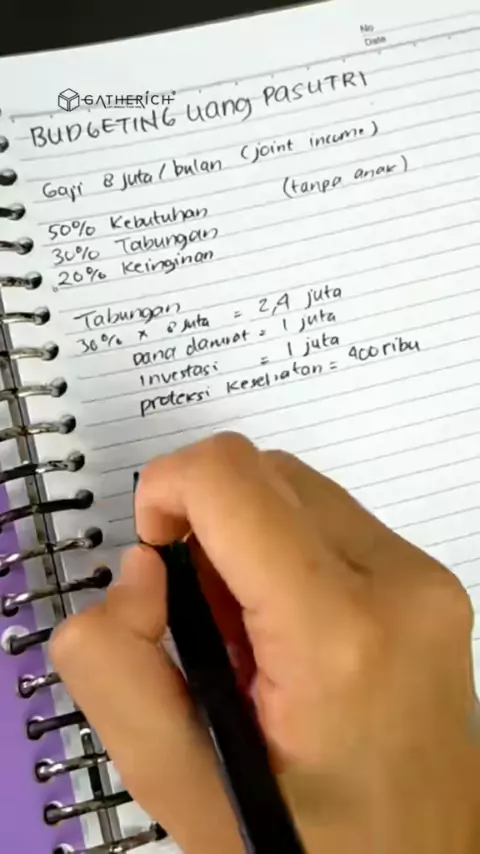 No
Date
GATHERICH
BUDGETING uang PASUTRI
Gaji 8 juta / bulan (joint income)
(tanpa anak)
50% Kebutuhan
30% Tabungan
20% Keinginan
Tabungan
30% x 8 juta = 2,4 juta
Dana darurat = 1 juta
Investasi = 1 juta
proteksi kesehatan = 400 ribu